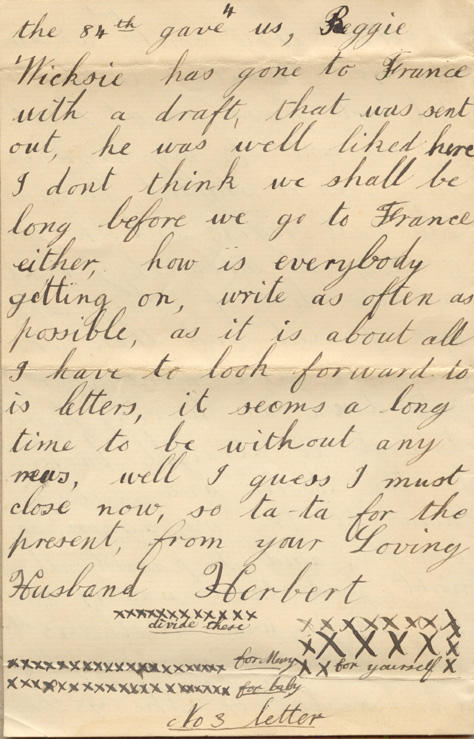 the 84th gave" us, Reggie
Wicksie has gone to France
with a draft, that was sent
out, he was well liked here
I dont think we shall be
long before we go to France
either, how is everybody
getting on, write as often as
possible, as it is about all
I have to look forward to
is letters, it seems a long
time to be without any
news, well I guess I must
close now, so ta-ta for the
present, from your Loving
Husband Herbert
xxxxxxxxxxxx
divide these
for Mary
for yourself
for baby
No 3 letter